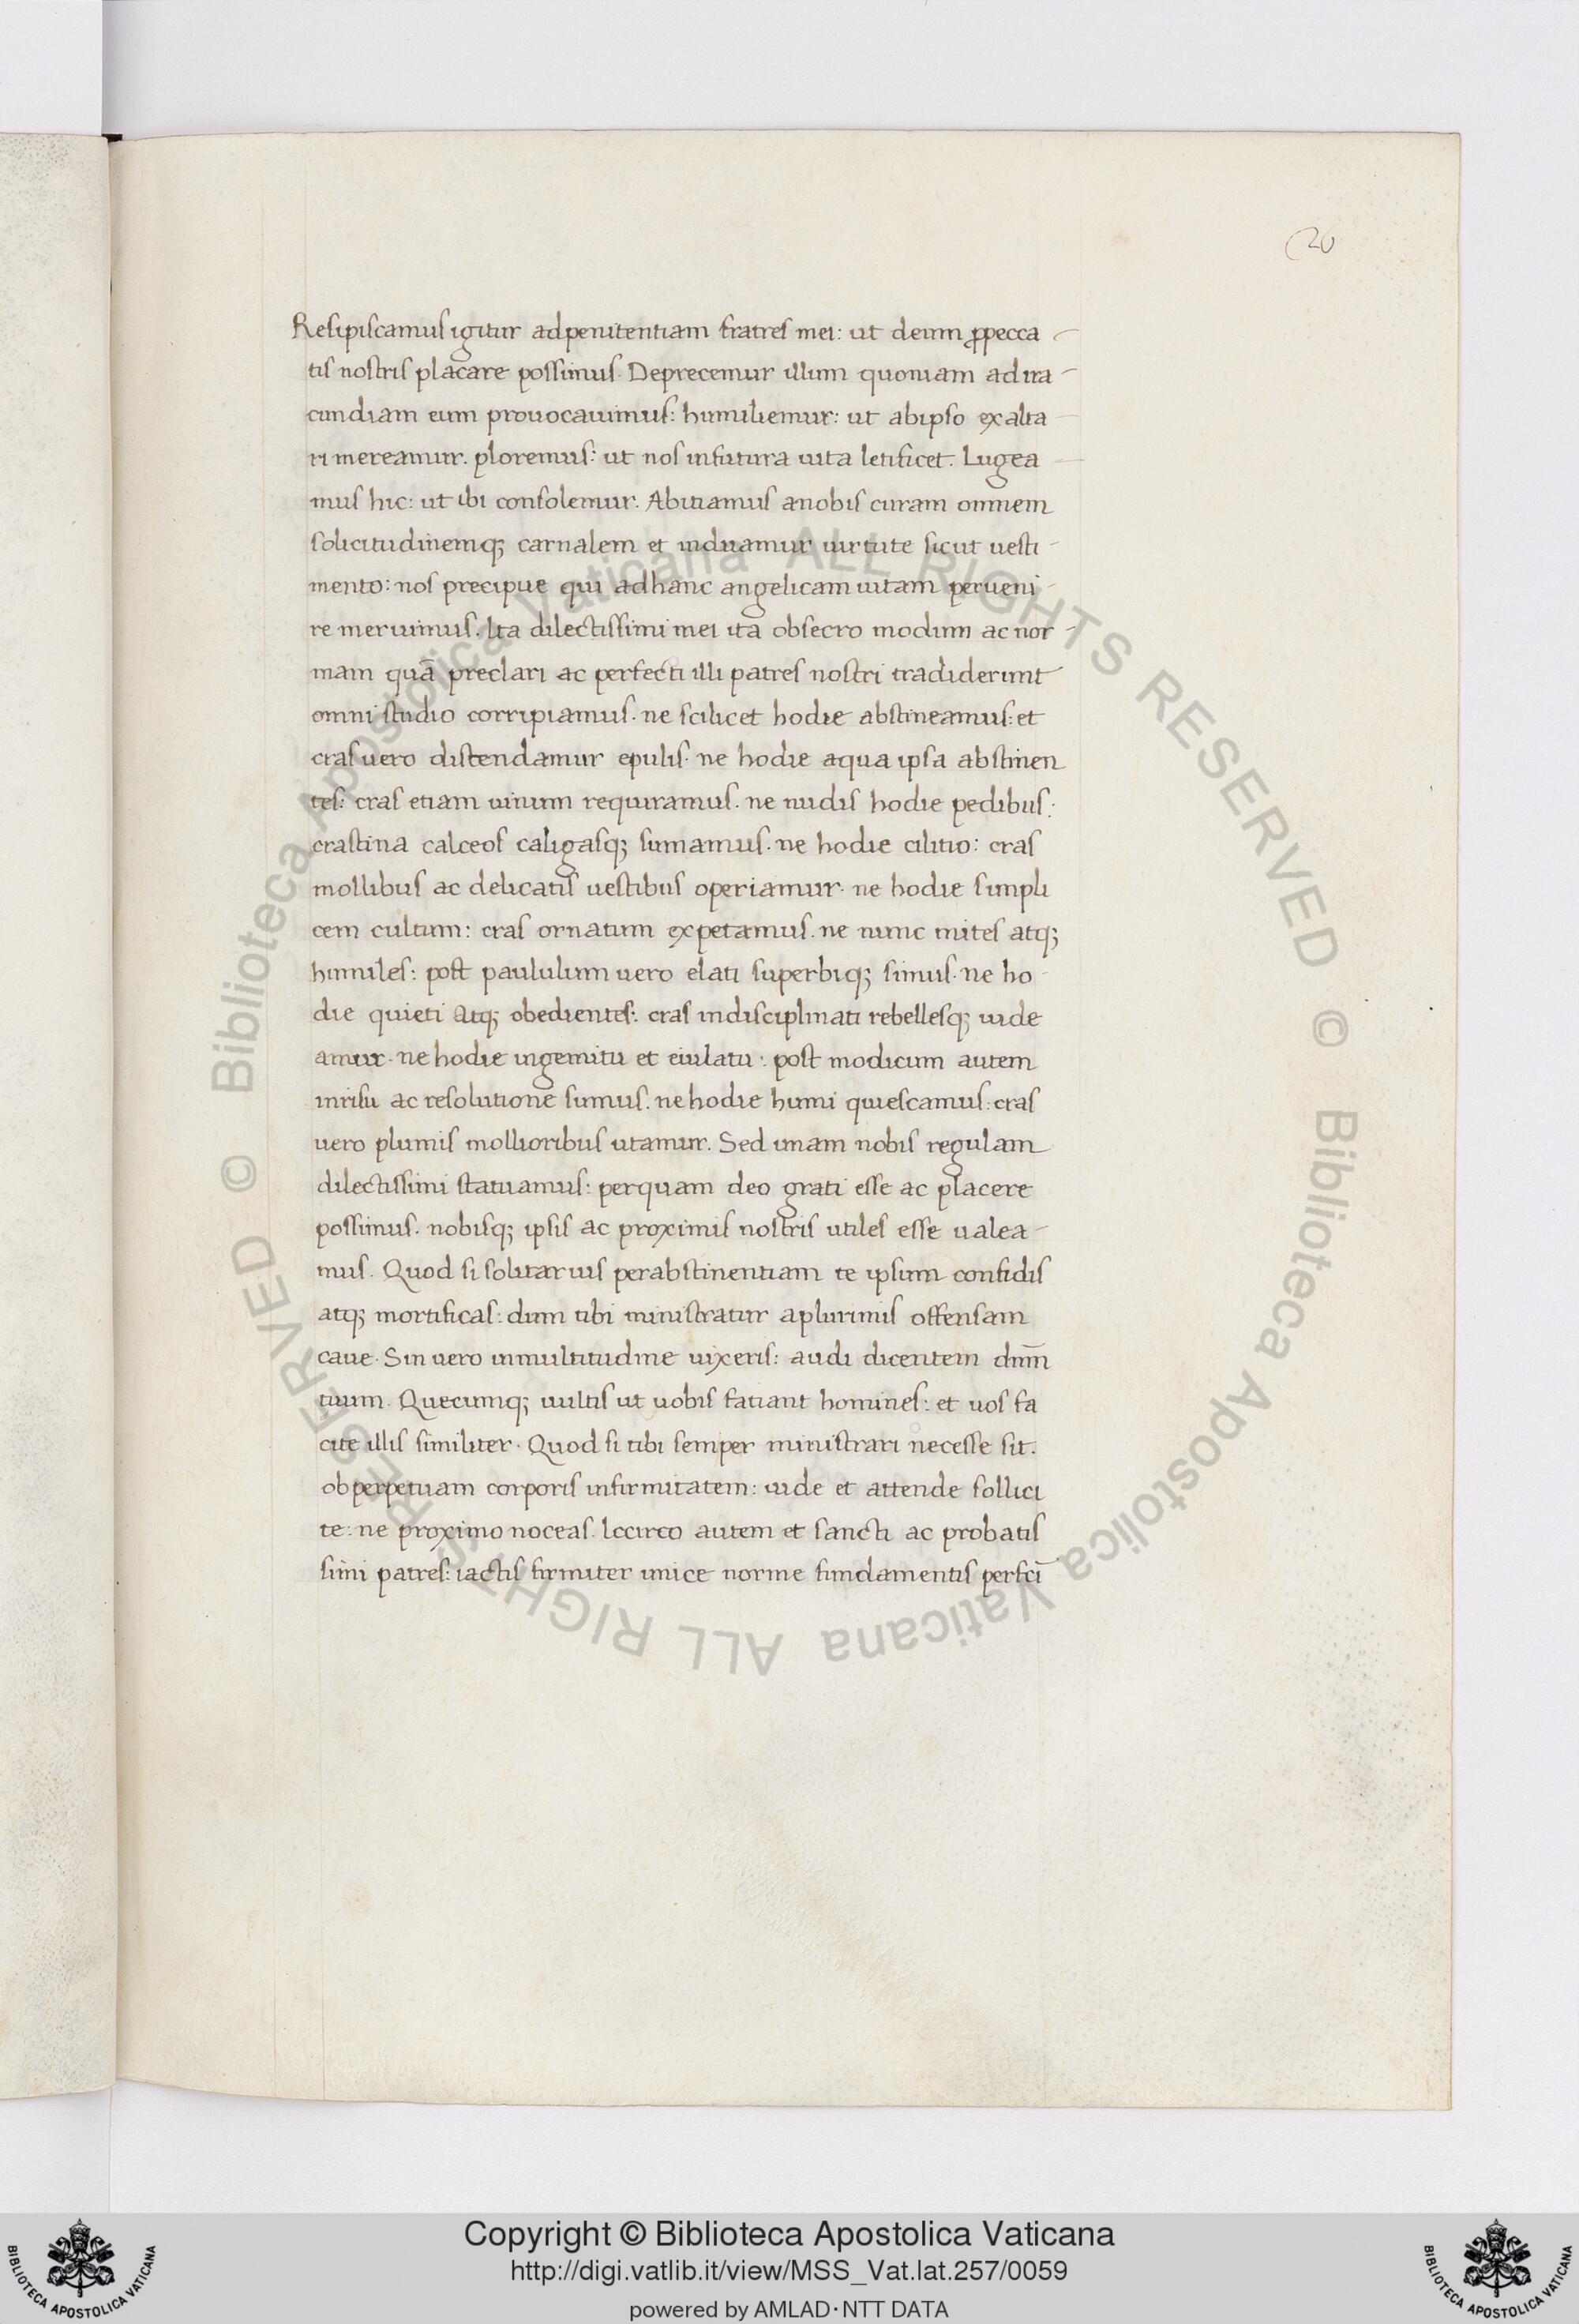 20
Resipiscamus igitur ad penitentiam fratres mei: ut deum ꝓ pecca-
tis nostris placare possimus. Deprecemur illum quoniam ad ira-
cundiam eum prouocauimus: humiliemur: ut ab ipso exalta-
ri mereamur. ploremus: ut nos in futura uita letificet. Lugea-
mus hic: ut ibi consolemur. Abitiamus a nobis curam omnem
solicitudinemq; carnalem et induamur uirtute sicut uesti-
mento: nos precipue qui ad hanc angelicam uitam perueni-
re meruimus. Ita dilectissimi mei ita obsecro modum ac nor-
mam quā preclari ac perfecti illi patres nostri tradiderunt
omni studio corripiamus. ne scilicet hodie abstineamus: et
cras uero distendamur epulis. ne hodie aqua ipsa abstinen
tes: cras etiam uinum requiramus. ne nudis hodie pedibus:
crastina calceos caligasq; sumamus. ne hodie cilitio: cras
mollibus ac delicatis uestibus operiamur. ne hodie simpli
cem cultum: cras ornatum expetamus. ne nunc mites atq;
humiles: post paululum uero elati superbiq; simus. ne ho-
die quieti atq; obedientes: cras indisciplinati rebellesq; uide
amur. ne hodie in gemitu et eiulatu: post modicum autem
in risu ac resolutione simus. ne hodie humi quiescamus: cras
uero plumis mollioribus utamur. Sed unam nobis regulam
dilectissimi statuamus: per quam deo grati esse ac placere
possimus. nobisq; ipsis ac proximis nostris utiles esse ualea-
mus. Quod si solitarius per abstinentiam te ipsum confidis
atq; mortificas: dum tibi ministratur a plurimis offensam
caue. Sin uero in multitudine uixeris: audi dicentem dnm̄
tuum. Quecumq; uultis ut uobis fatiant homines: et uos fa
cite illis similiter. Quod si tibi semper ministrari necesse sit.
ob perpetuam corporis infirmitatem: uide et attende sollici
te: ne proximo noceas. Iccirco autem et sancti ac probatis
simi patres: iactis firmiter unice norme fundamentis perfcī
Biblioteca Apostolica Vaticana ALL RIGHTS RESERVED © Biblioteca Apostolica Vaticana ALL RIGHTS RESERVED ©
BIBLIOTECA APOSTOLICA VATICANA
Copyright © Biblioteca Apostolica Vaticana
http://digi.vatlib.it/view/MSS_Vat.lat.257/0059
powered by AMLAD·NTT DATA
BIBLIOTECA APOSTOLICA VATICANA